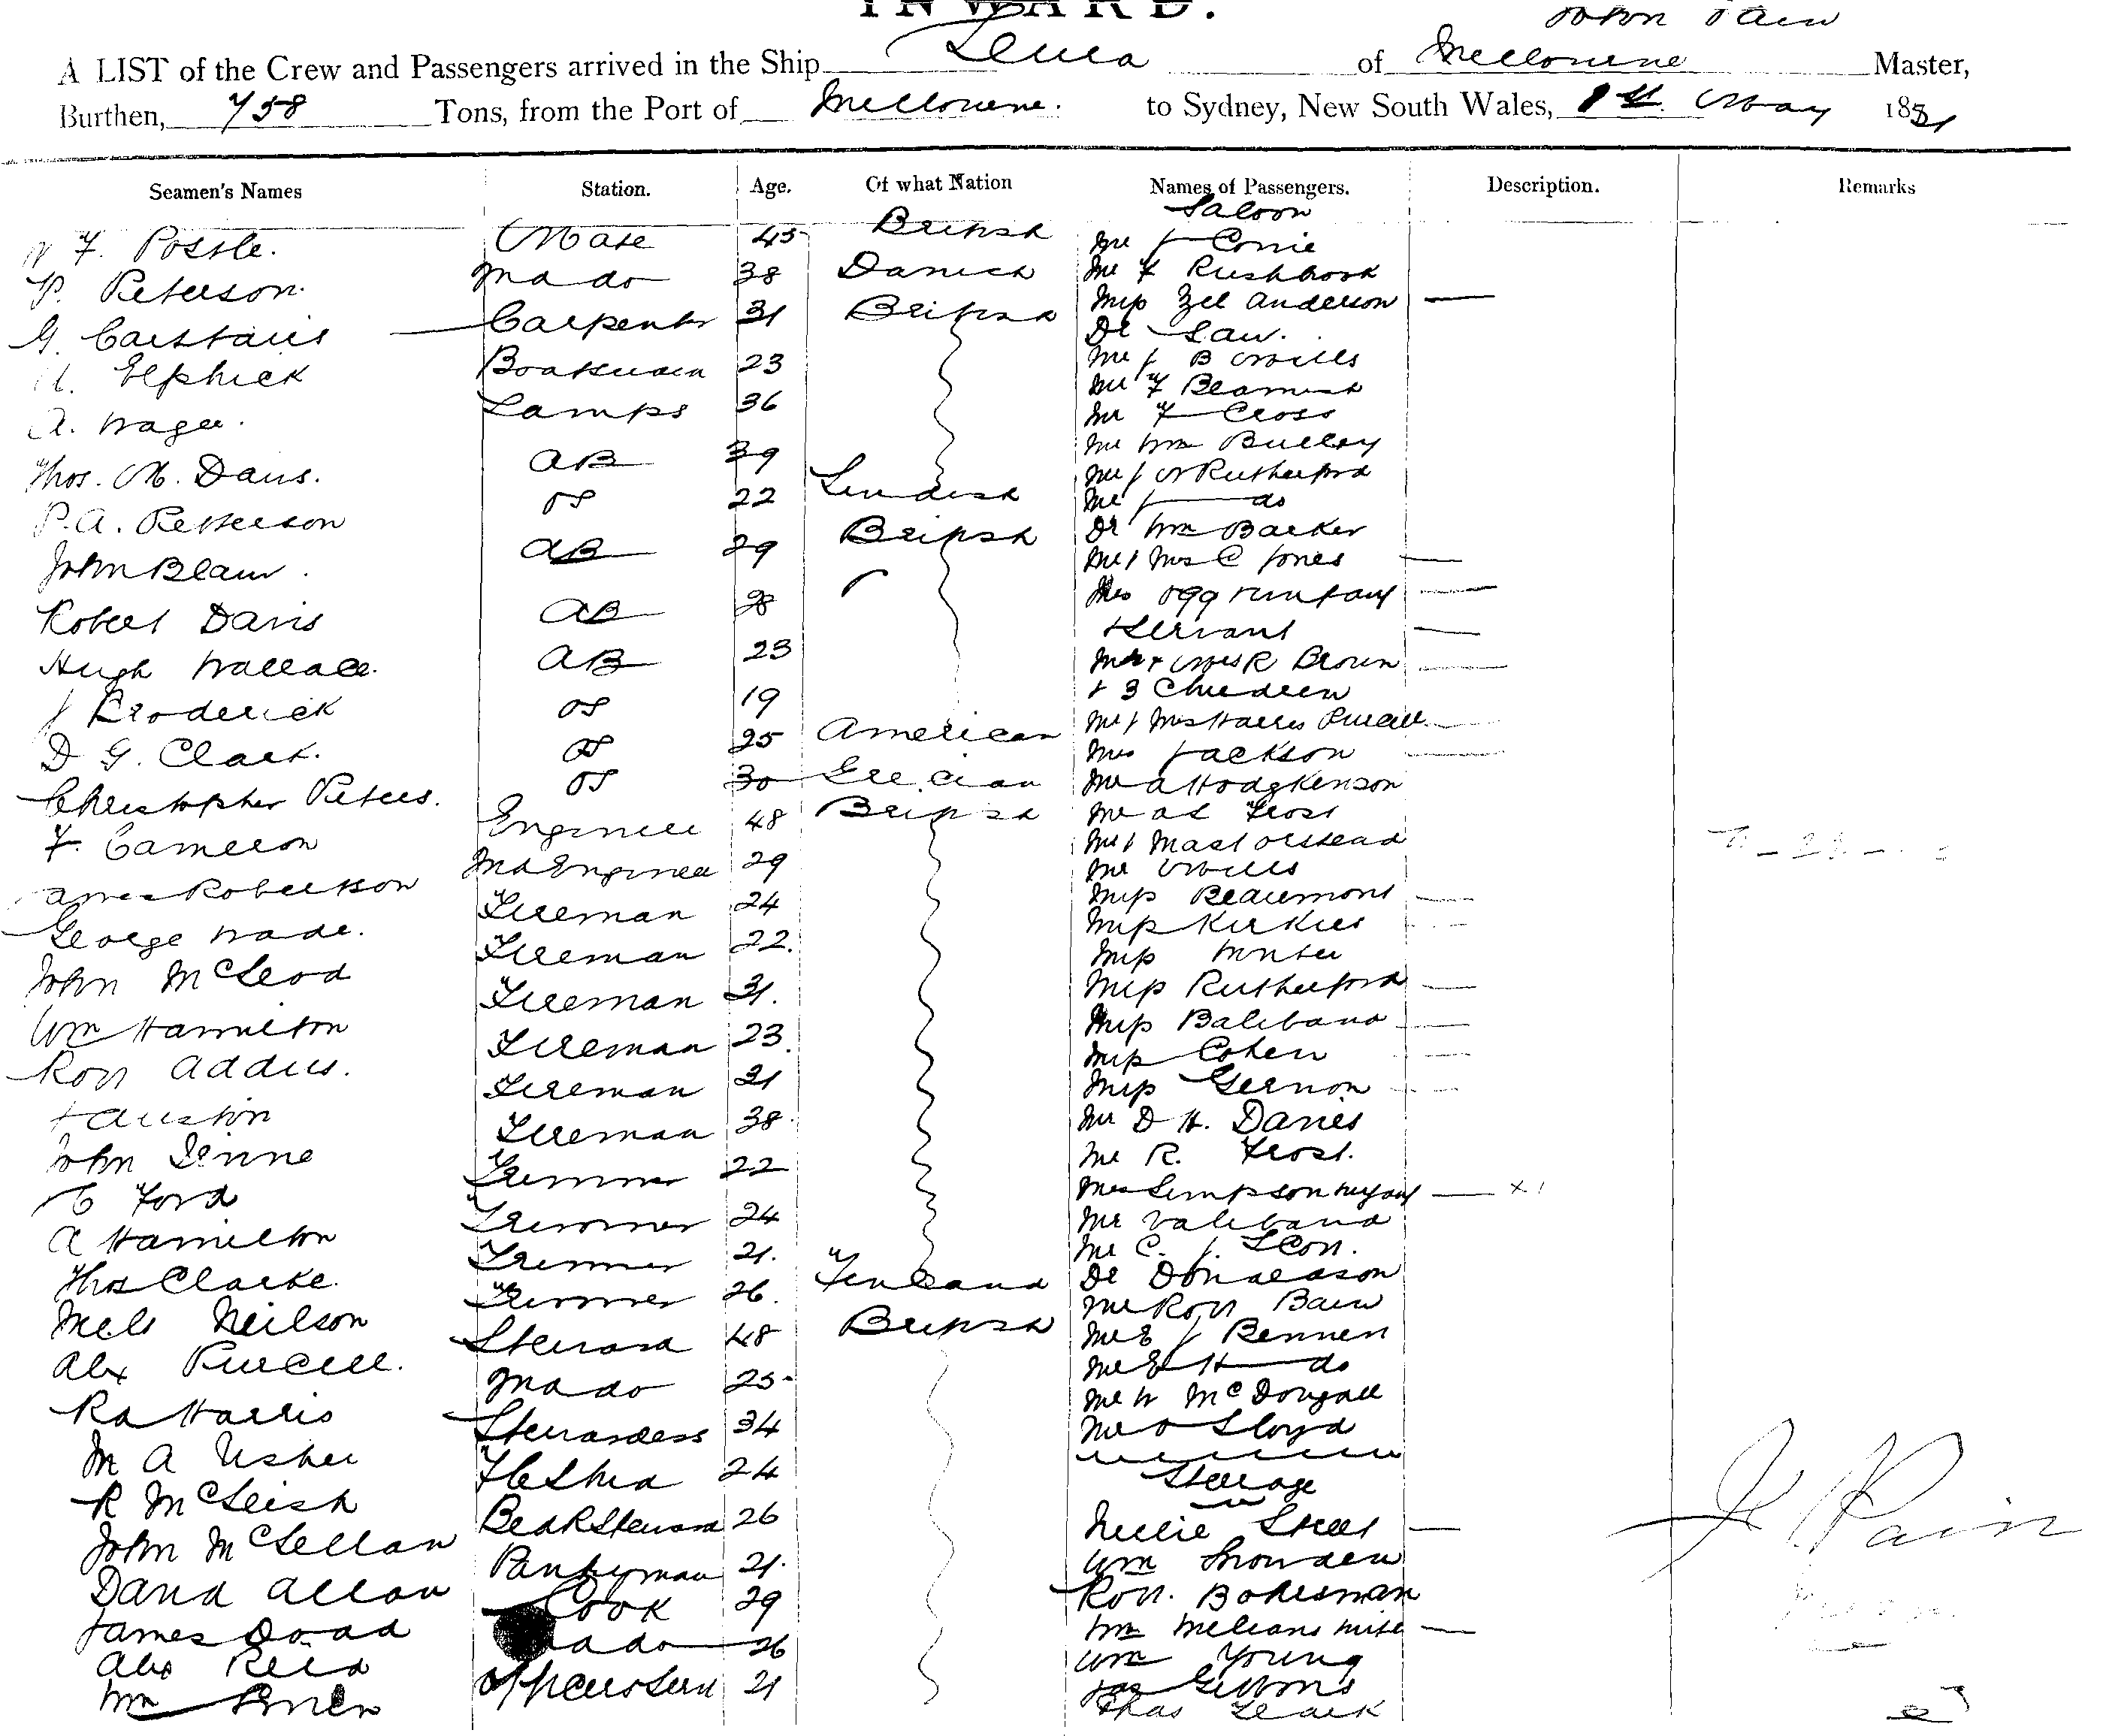 INWARD.
John Pain
A LIST of the Crew and Passengers arrived in the Ship Leura of Melbourne Master,
Burthen, 758 Tons, from the Port of Melbourne. to Sydney, New South Wales, 1st May 1881
Seamen's Names Station. Age. Of what Nation Names of Passengers. Description. Remarks
Saloon
F. Possle. Mate 45 British Mr J Corrie
P. Peterson 2nd do 38 Danish Mr F Rushbrook
G. Carstairs Carpenter 31 British Miss Anderson
Dr Law.
Elphick Boatswain 23 Mr J B Mills
A. Wager. Lamps 36 Mr F Beamish
Mr F Cross
Thos. M. Davis. AB 39 Mr Wm Bulley
P.A. Petterson OS 22 Swedish Mr J W Rutherford
Mr J do
John Blair. AB 29 British Dr Wm Barker
Mr & Mrs C Jones
Robert Davis AB 28 Mrs Ogg infant
& Servant
Hugh Wallace. AB 23 Mr & Mrs R Brown
& 3 Children
J Broderick OS 19 Mr & Mrs Harris Purcell
D G. Clark. OS 25 American Mrs Jackson
Christopher Peters. OS 30 Grecian Mr A Hodgkenson
F. Cameron Engineer 48 British Mr A L Frost
Mr & Mast Olstead
James Robertson 2nd Engineer 29 Mr Mills
George Wade. Fireman 24 Miss Beaumont
Miss Kirkies
John McLeod Fireman 22. Miss Winter
Wm Hamilton Fireman 31. Miss Rutherford
Robt Addis. Fireman 23. Miss Baliband
Miss Cohen
J Austin Fireman 31 Miss Gernon
John Dinne Fireman 38 Mr D H. Davies
C Ford Trimmer 22 Mr R. Frost.
Mrs Simpson
A Hamilton Trimmer 24 Mr Valiband
Mr C. J. Leon.
Thos Clarke. Trimmer 21. Dr Donaldson
Neils Neilson Trimmer 26. Finland Mr Robt Bain
Alex Purcell. Steward 48 British Mr E J Bennett
Mr E H do
Rd Harris 2nd do 25 Mr W McDougall
M A Usher Stewardess 34 Mr O Lloyd
R McLeish F C Stwd 24 Steerage
John McLellan Bed R Steward 26 Nellie Street
David Allan Pantryman 21. Wm Snowden
James Dodd Cook 29 Robt. Bokesman
Wm Meleans wife
Alex Reid 2nd do 26 Wm Young
Wm Officers Servt 21 Jas Gibbons
Thas Clark
J Pain